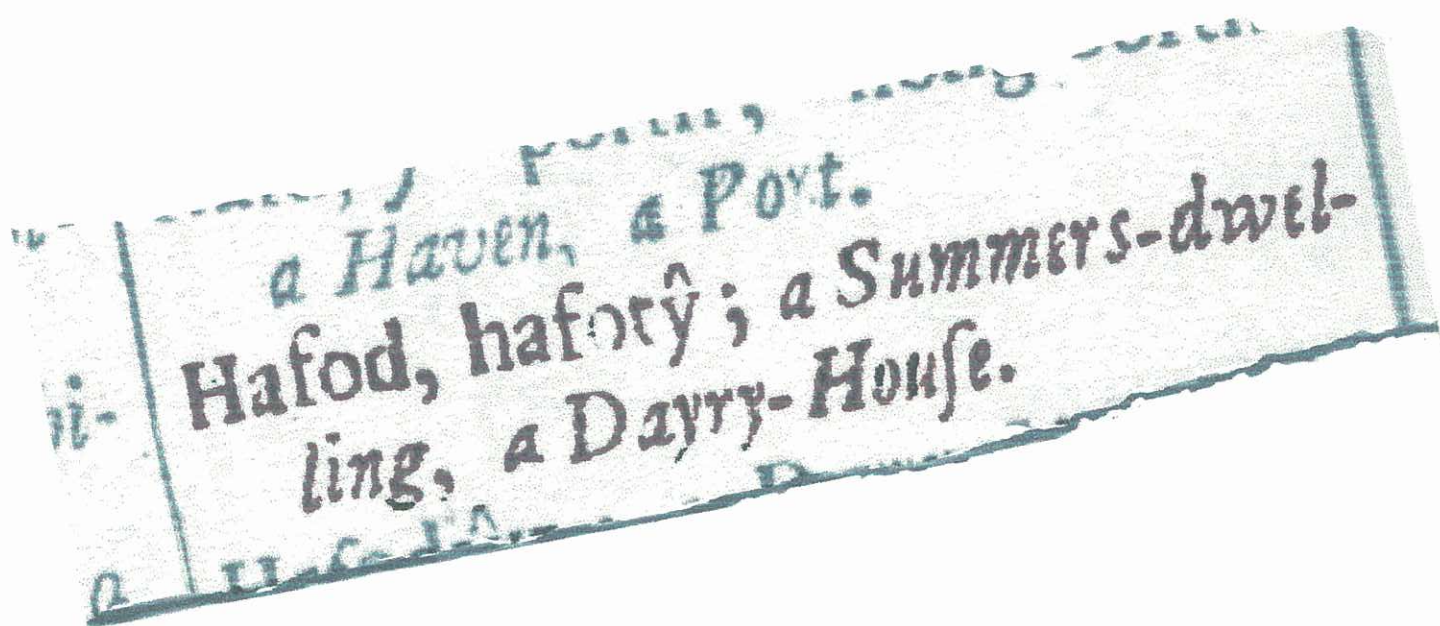 a Haven, a Port.
Hafod, hafotŷ; a Summers-dwel-
ling, a Dayry-Houſe.